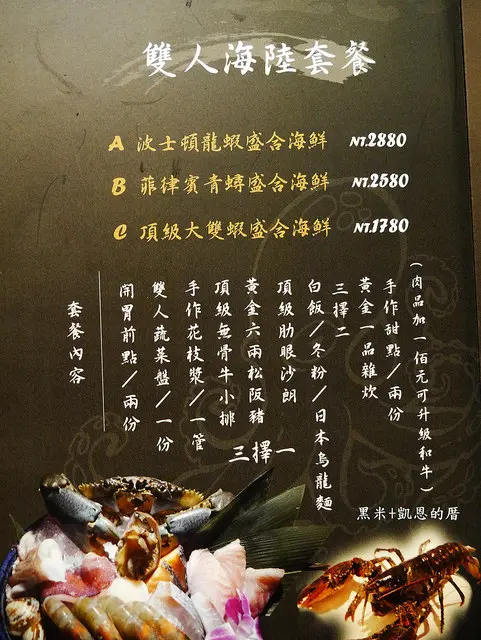 雙人海陸套餐
A 波士頓龍蝦盛合海鮮 NT.2880
B 菲律賓青蟳盛合海鮮 NT.2580
C 頂級大雙蝦盛合海鮮 NT.1780
(肉品加一佰元可升級和牛)
手作甜點/兩份
黃金一品雜炊
三擇二
白飯/冬粉/日本烏龍麵
頂級肋眼沙朗
黃金六兩松阪豬
頂級無骨牛小排
三擇一
手作花枝漿/一管
雙人蔬菜盤/一份
開胃前點/兩份
套餐內容
黑米+凱恩的厝